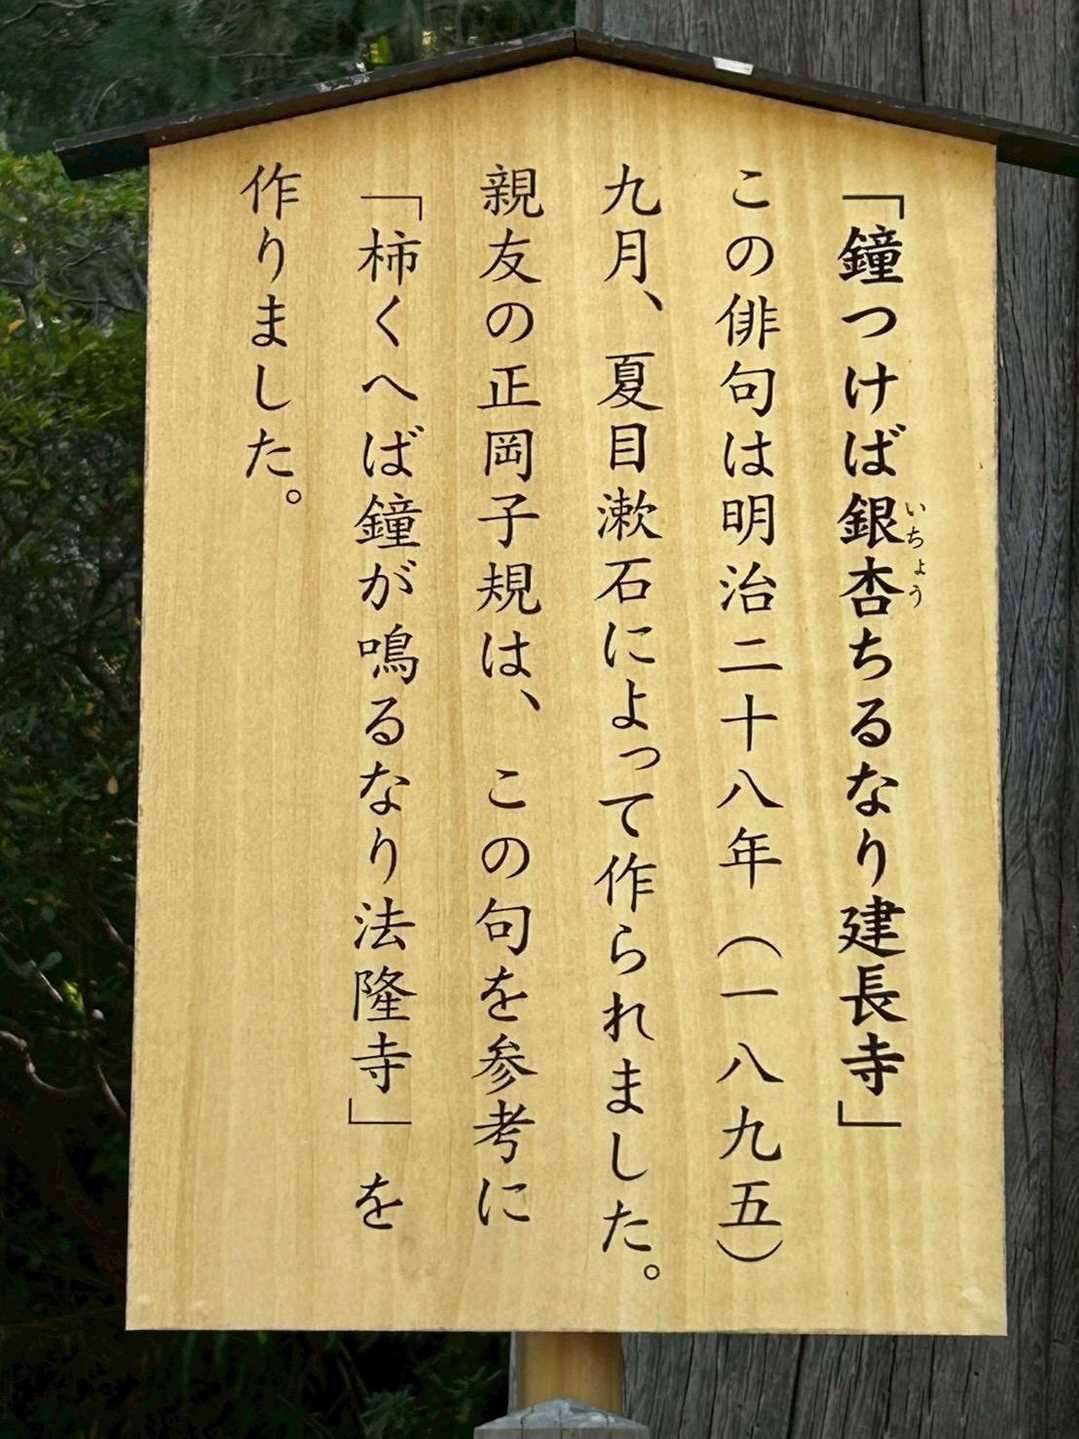 「鐘つけば銀杏ちるなり建長寺」
いちょう
この俳句は明治二十八年（一八九五）
九月、夏目漱石によって作られました。
親友の正岡子規は、この句を参考に
「柿くへば鐘が鳴るなり法隆寺」を
作りました。